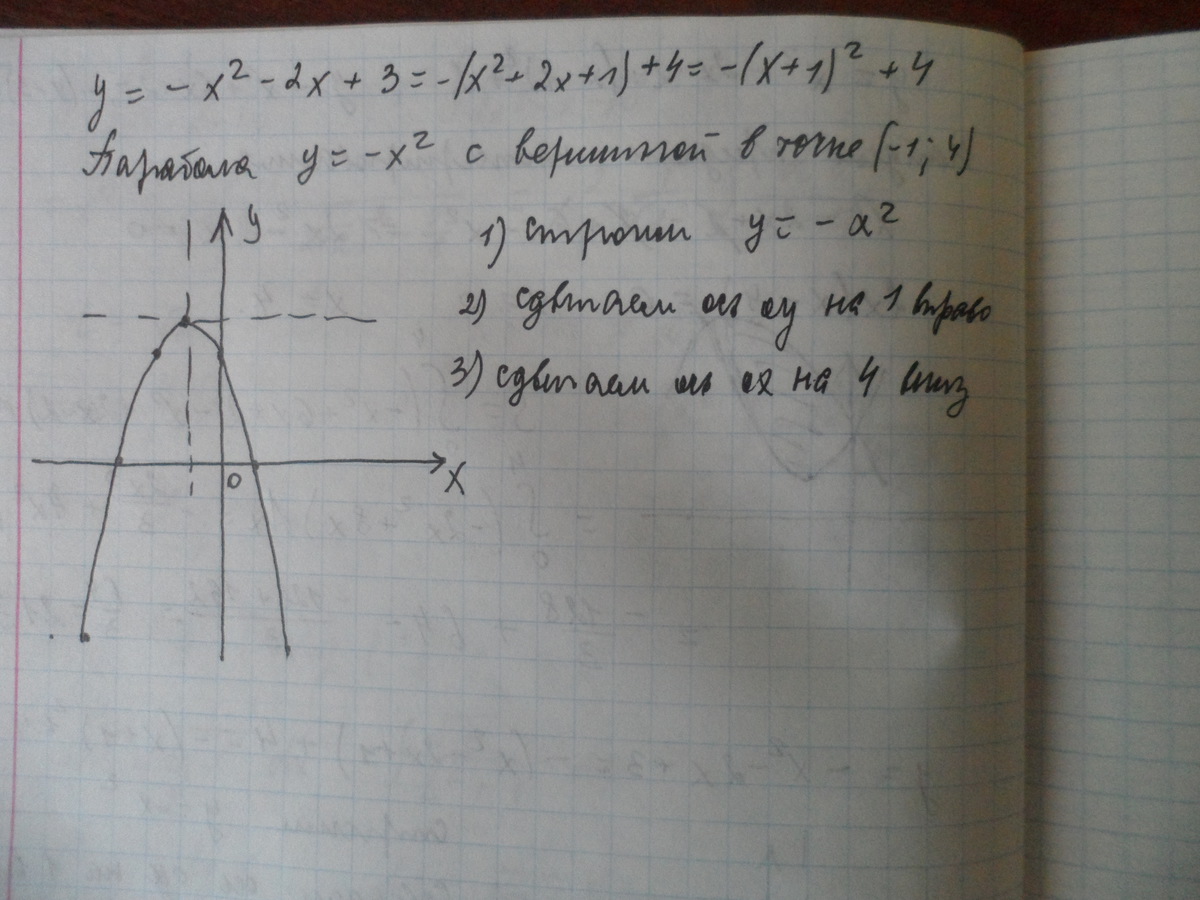 y = - x² - 2x + 3 = -(x² + 2x + 1) + 4 = -(x+1)² + 4
Парабола y = -x² с вершиной в точке (-1; 4)
y
1) строим y = - x²
2) сдвигаем ось oy на 1 вправо
3) сдвигаем ось ox на 4 вниз
0
x